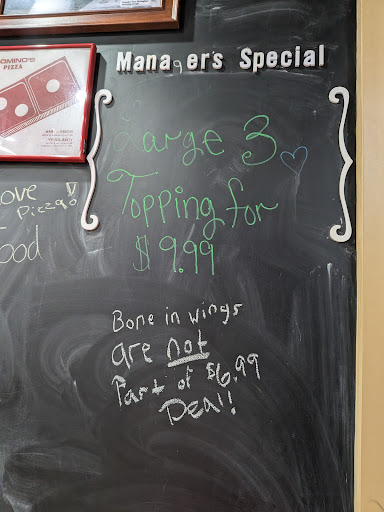 Managers Special
DOMINO'S
PIZZA
Large 3
Topping for
$9.99
Love
Pizza!
Food
Bone in wings
are not
Part of $6.99
Deal!